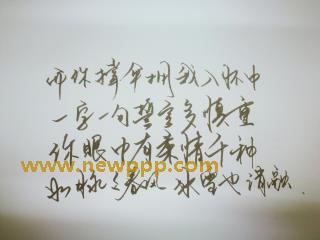 而你撑伞拥我入怀中
一字一句誓言多慎重
你眼中有柔情千种
www.newppp.com
如脉々春风 冰雪也消融.